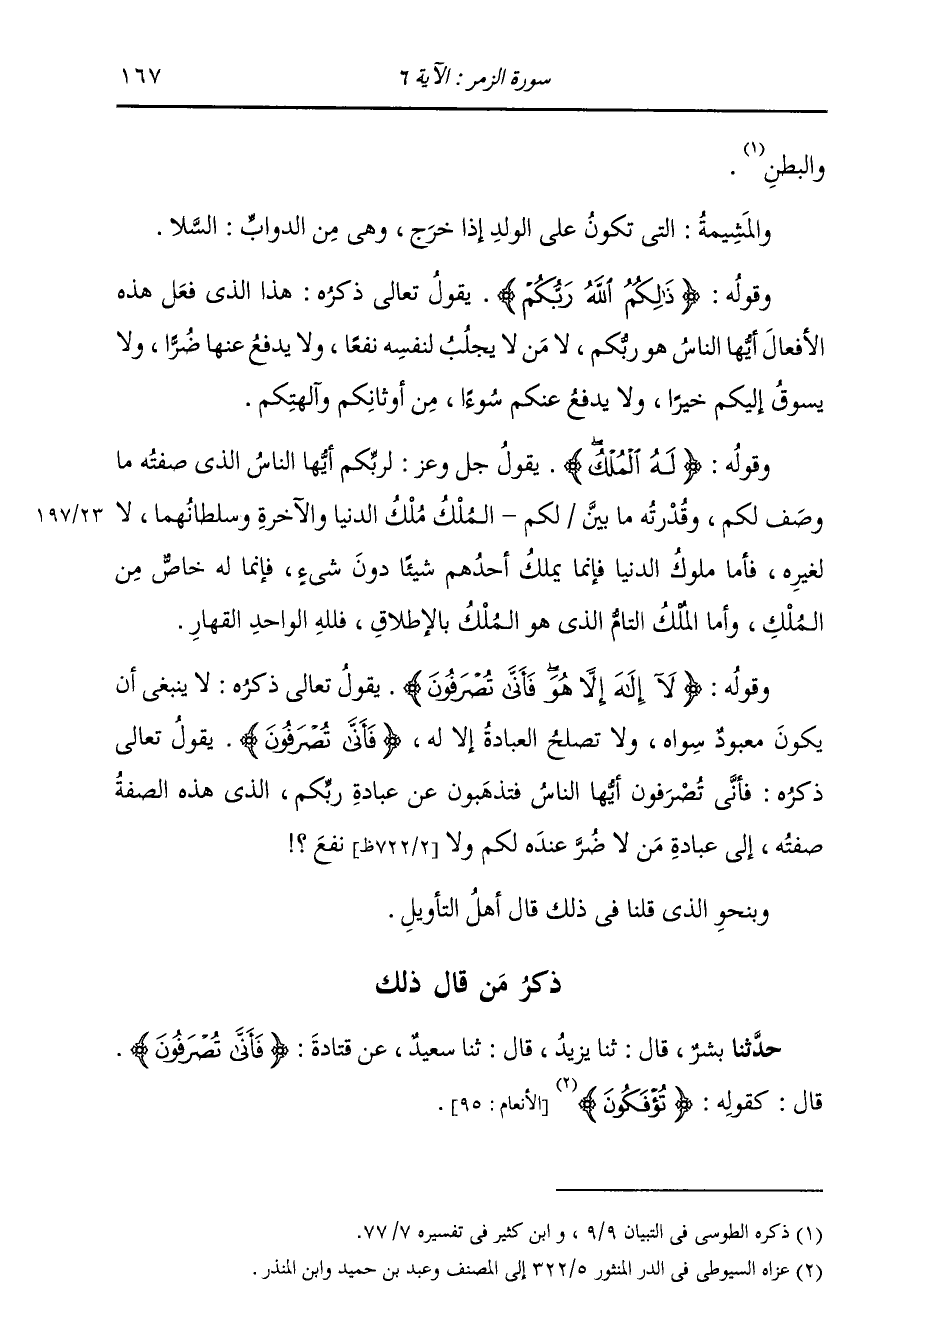 سورة الزمر : الآية ٦ ١٦٧
والبطنِ(١) .
والمَشِيمةُ : التى تكونُ على الولدِ إذا خرَج ، وهى مِن الدوابِّ : السَّلا .
وقولُه : ﴿ ذَٰلِكُمُ ٱللَّهُ رَبُّكُمْ ﴾ . يقولُ تعالى ذكرُه : هذا الذى فعَل هذه
الأفعالَ أيُّها الناسُ هو ربُّكم ، لا مَن لا يجلُبُ لنفسِه نفعًا ، ولا يدفعُ عنها ضُرًّا ، ولا
يسوقُ إليكم خيرًا ، ولا يدفعُ عنكم سُوءًا ، مِن أوثانِكم وآلهتِكم .
وقولُه : ﴿ لَهُ ٱلْمُلْكُۖ ﴾ . يقولُ جل وعز : لربِّكم أيُّها الناسُ الذى صفتُه ما
وصَف لكم ، وقُدْرتُه ما بينَّ / لكم – المُلْكُ مُلْكُ الدنيا والآخرةِ وسلطانُهما ، لا ١٩٧/٢٣
لغيرِه ، فأما ملوكُ الدنيا فإنما يملكُ أحدُهم شيئًا دونَ شىءٍ ، فإنما له خاصٌّ مِن
المُلْكِ ، وأما المُلْكُ التامُّ الذى هو المُلْكُ بالإطلاقِ ، فللهِ الواحدِ القهارِ .
وقولُه : ﴿ لَآ إِلَٰهَ إِلَّا هُوَۖ فَأَنَّىٰ تُصْرَفُونَ ﴾ . يقولُ تعالى ذكرُه : لا ينبغى أن
يكونَ معبودٌ سِواه ، ولا تصلحُ العبادةُ إلا له ، ﴿ فَأَنَّىٰ تُصْرَفُونَ ﴾ . يقولُ تعالى
ذكرُه : فأنَّى تُصْرَفون أيُّها الناسُ فتذهَبون عن عبادةِ ربِّكم ، الذى هذه الصفةُ
صفتُه ، إلى عبادةِ مَن لا ضُرَّ عندَه لكم ولا [٧٢٢/٢ظ] نفعَ ؟!
وبنحوِ الذى قلنا فى ذلك قال أهلُ التأويلِ .
ذكرُ مَن قال ذلك
حدَّثنا بشرٌ ، قال : ثنا يزيدُ ، قال : ثنا سعيدٌ ، عن قتادةَ : ﴿ فَأَنَّىٰ تُصْرَفُونَ ﴾ .
قال : كقولِه : ﴿ تُؤْفَكُونَ ﴾(٢) [الأنعام : ٩٥] .
(١) ذكره الطوسى فى التبيان ٩/٩ ، و ابن كثير فى تفسيره ٧٧/٧.
(٢) عزاه السيوطى فى الدر المنثور ٣٢٢/٥ إلى المصنف وعبد بن حميد وابن المنذر .